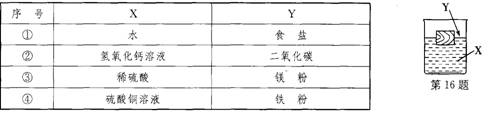 序 号 X Y
① 水 食 盐
② 氢氧化钙溶液 二氧化碳
③ 稀硫酸 镁 粉
④ 硫酸铜溶液 铁 粉
Y
X
第16题